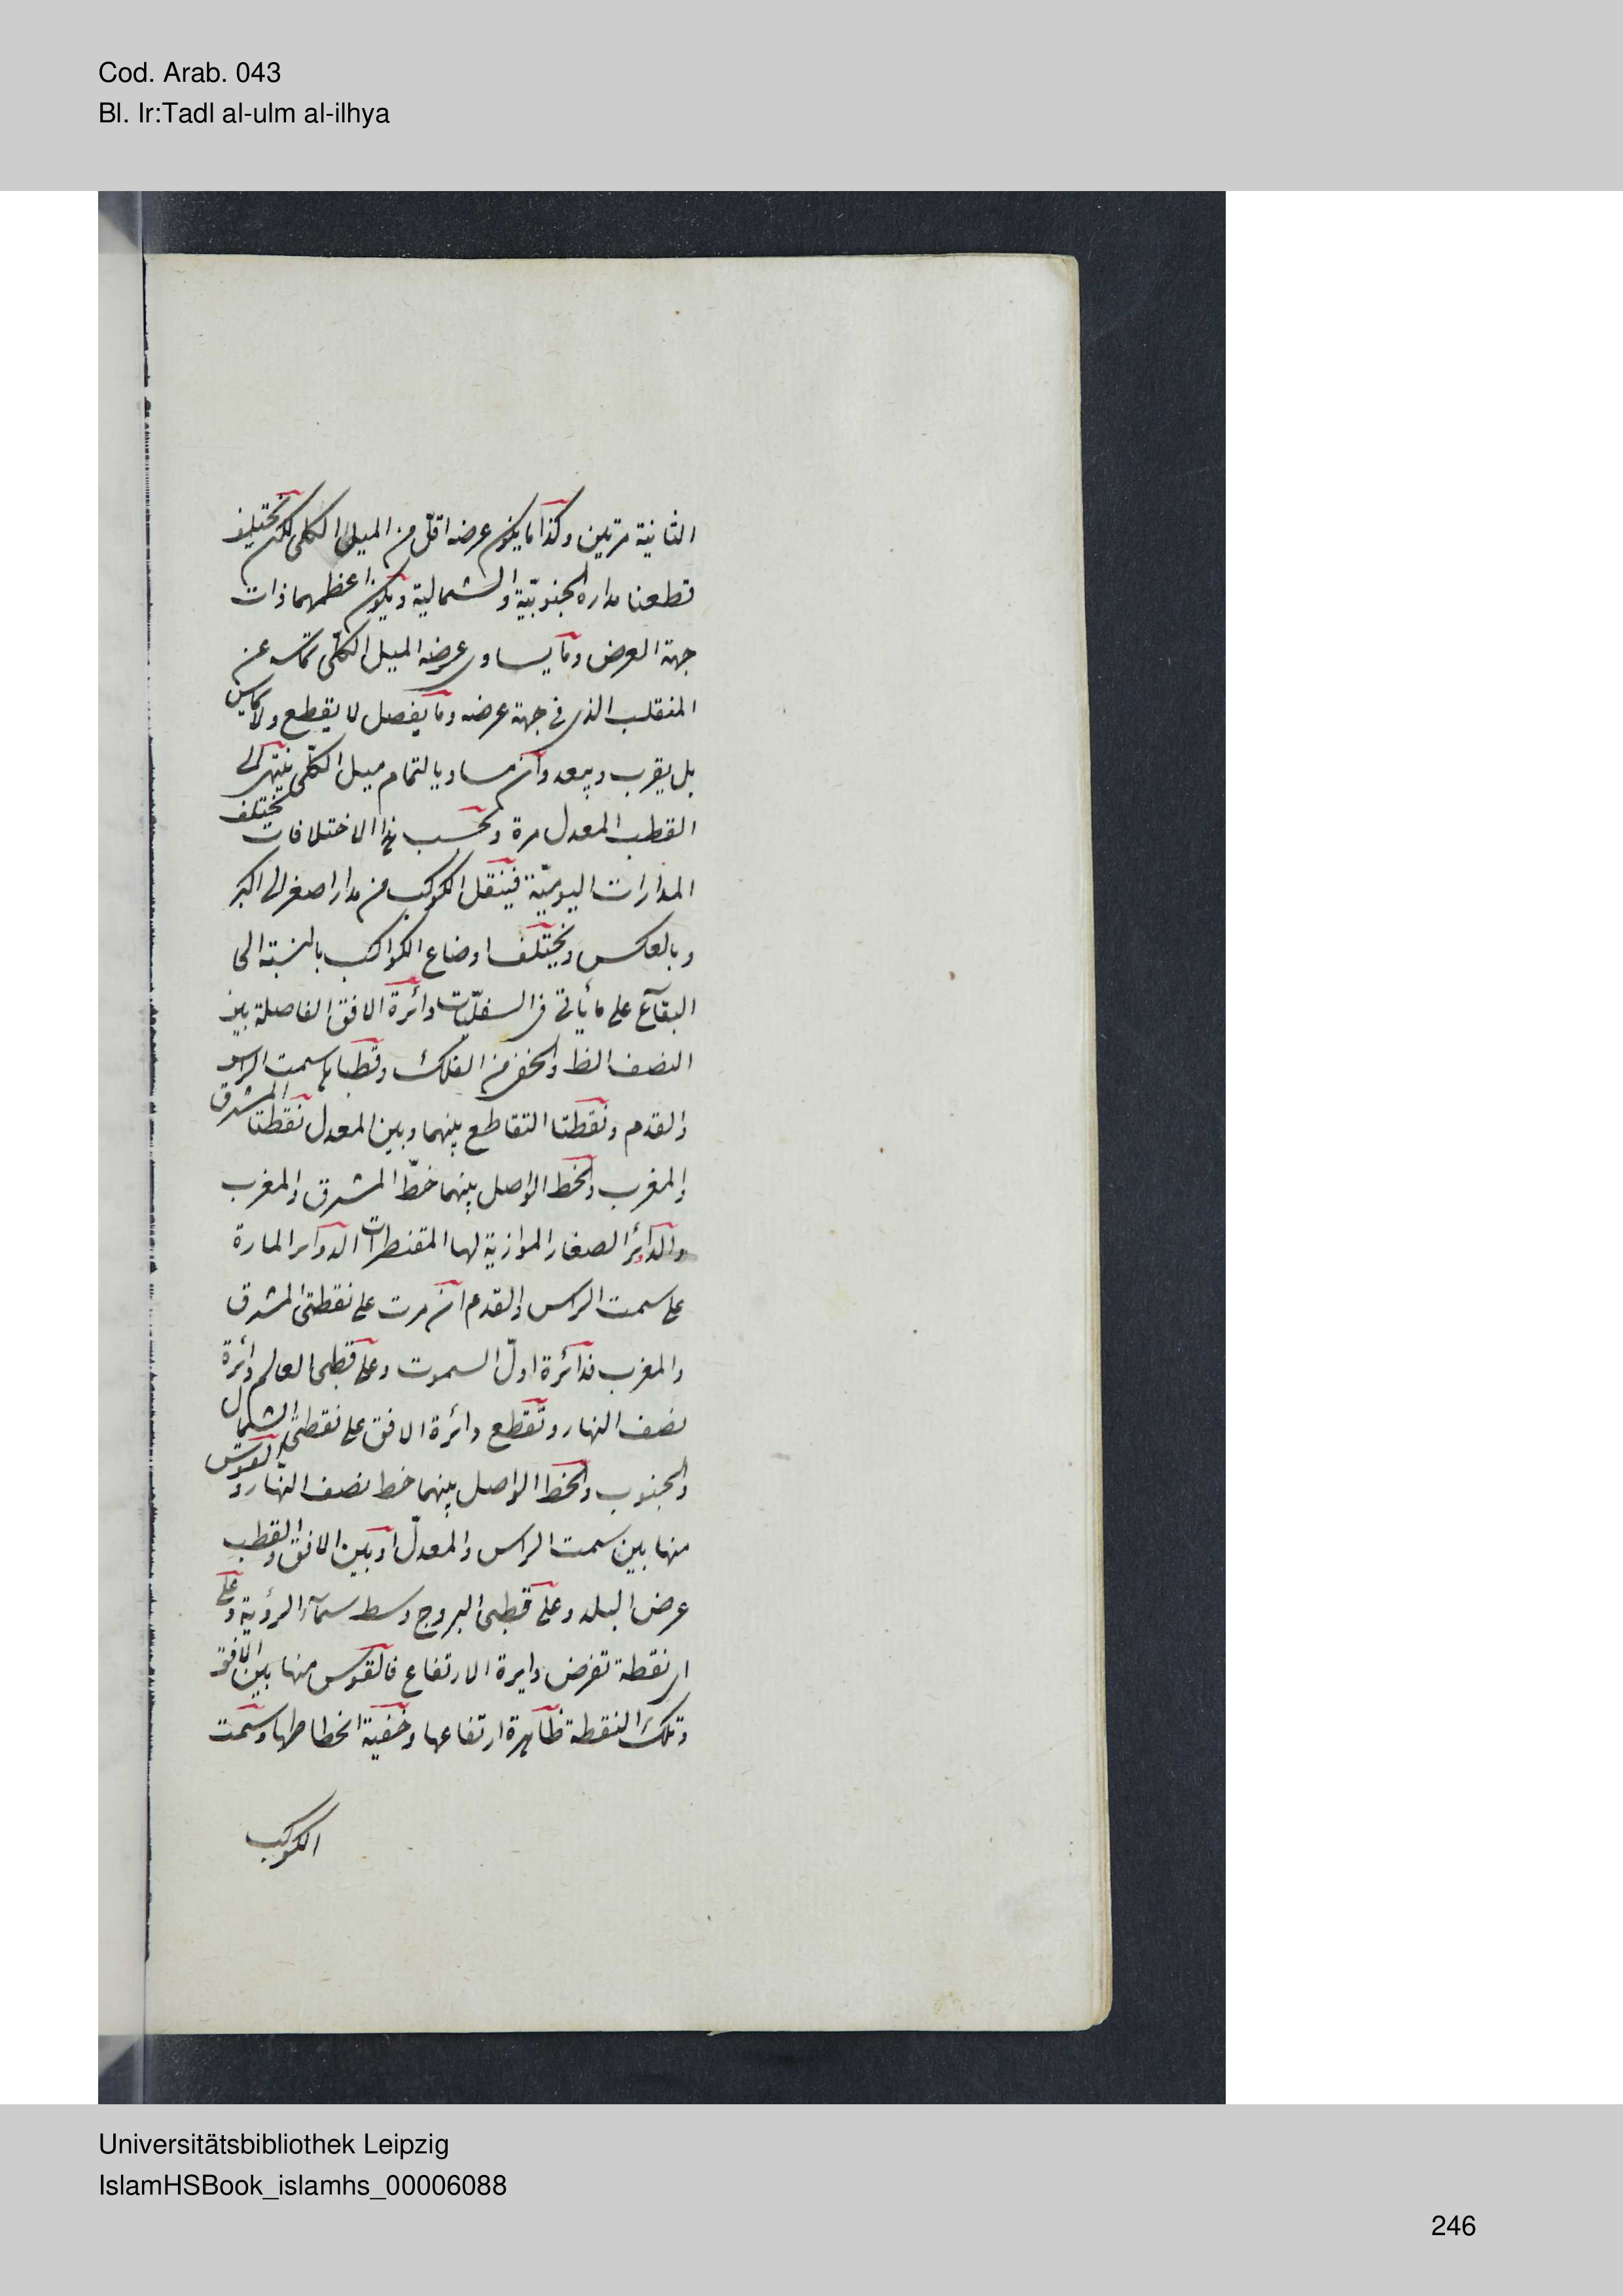 Cod. Arab. 043
Bl. Ir:Tadl al-ulm al-ilhya
الثانية مرتين وكذا ما يكون عرضه اقلّ من الميل الكلى لكن تختلف
قطعتا مداره الجنوبيّة والشمالية ويكون اعظمهما ذات
جهة العرض وما يساوى عرضه الميل الكلّى تماسه عن
المنقلب الذى فى جهة عرضه وما يفصل لا يقطع ولا يماس
بل يقرب ويبعد وان مساويا لتمام ميل الكلّى ينتهى الى
القطب المعدل مرة وبحسب هذا الاختلافات يختلف
المدارات اليوميّة فينقل الكوكب من مدار اصغر الى اكبر
وبالعكس ويختلف اوضاع الكواكب بالنسبة الى
البقاع على ما يأتى فى السفليّات دائرة الافق الفاصلة بين
النصف الظ والخفى من الفلك وقطباها سمت الراس
والقدم ونقطتا التقاطع بينهما وبين المعدل نقطتا المشرق
والمغرب والخط الواصل بينهما خطّ المشرق والمغرب
والدوائر الصغار الموازية لها المقنطرات الدوائر المارة
على سمت الراس والقدم ان مرت على نقطتى المشرق
والمغرب فدائرة اولّ السموت وعلى قطبى العالم دائرة
نصف النهار وتقطع دائرة الافق على نقطتى الشمال
والجنوب والخط الواصل بينهما خط نصف النهار والقوس
منها بين سمت الراس والمعدلّ او بين الافق والقطب
عرض البلد وعلى قطبى البروج وسط سماء الرؤية وعلى
اى نقطة تفرض دايرة الارتفاع فالقوس منها بين الافق
وتلك النقطة ظاهرة ارتفاعها وخفية انحطاطها وسمت
الكوكب
Universitätsbibliothek Leipzig
IslamHSBook_islamhs_00006088
246